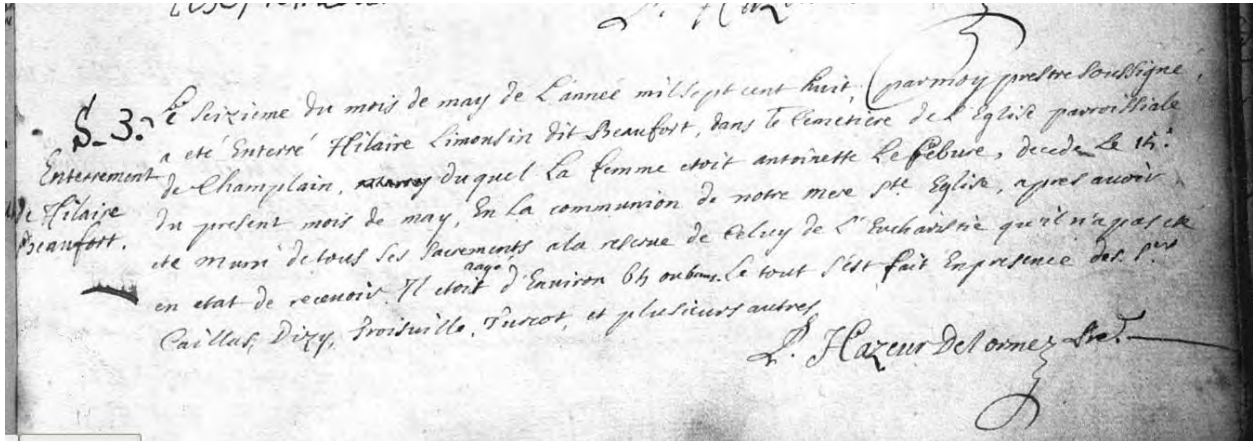 S. 3.
Enterrement
de Hilaire
Beaufort.
Le Seizieme du mois de may de L'année mil sept cent huit, par moy prestre Soussigné,
a eté Enterré Hilaire Limousin dit Beaufort, dans le Cemetière de L'Eglise parroissiale
de Champlain, duquel La femme etoit antoinette Lefebure, decedé Le 15.
du present mois de may, En La communion de notre mere Ste Eglise, apres auoir
eté muni de tous ses Sacrements a la reserue de Celuy de L'Eucharistie qu'il n'a pas eté
en etat de receuoir. Il etoit aagé d'Environ Le tout s'Est fait En presence des Srs
Caillas, Dizy, Troisuille, Turcot, et plusieurs autres
L. Hazeur Delormez Pre.